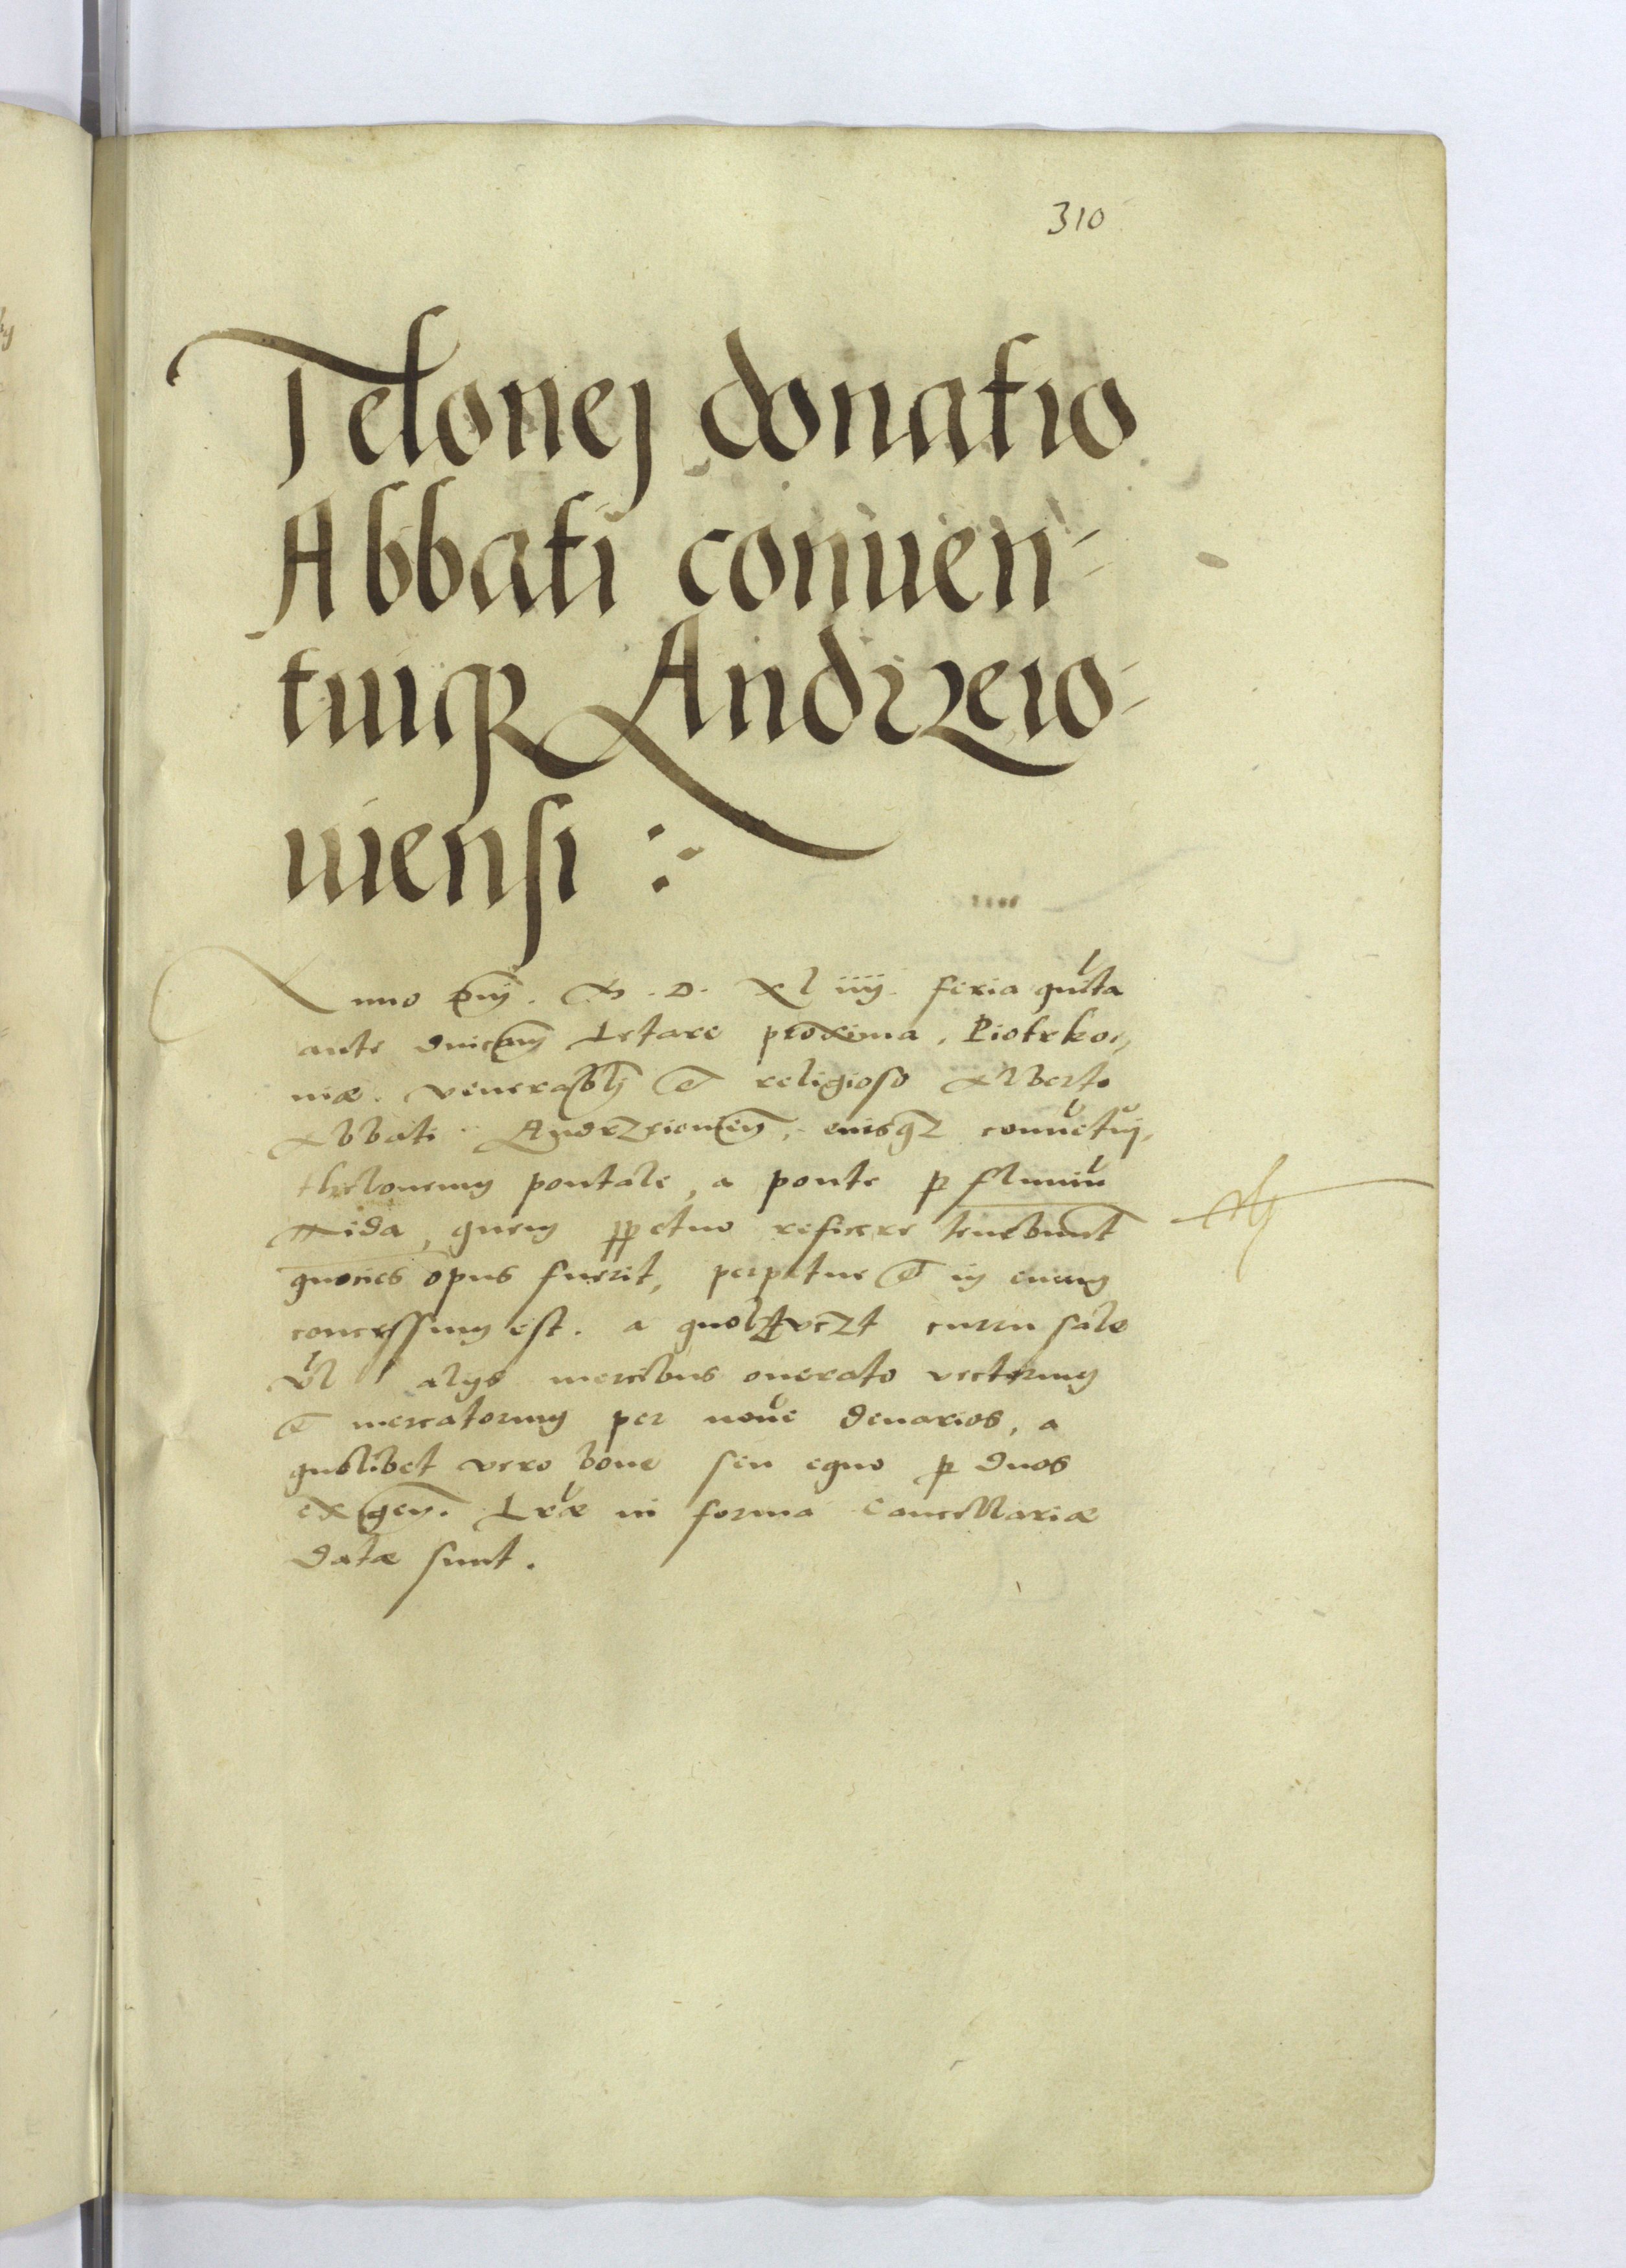 310
Telonej donatio
Abbati conuen-
tuiq3 Andrzeio-
uiensi :·
Anno dnj. M. D. XL iiij. feria quīta
ante dnicam Letare proxima, Piotrkoui,
niæ. venerabilj et religioso Alberto
Abbati Andrzeiouien, eiusq3 conuētuj,
theloneum pontale, a ponte p fluuiū
Nida, quem ppetuo reficere tenebunt
quocies opus fuerit, perpetue et in euum
concessum est. a quolz vezt curru sale
vl alijs mercibus onerato vectorum
et mercatorum per nouē denarios, a
quolibet vero boue seu equo p duos
exigen. Lræ in forma Cancellariæ
datæ sunt.